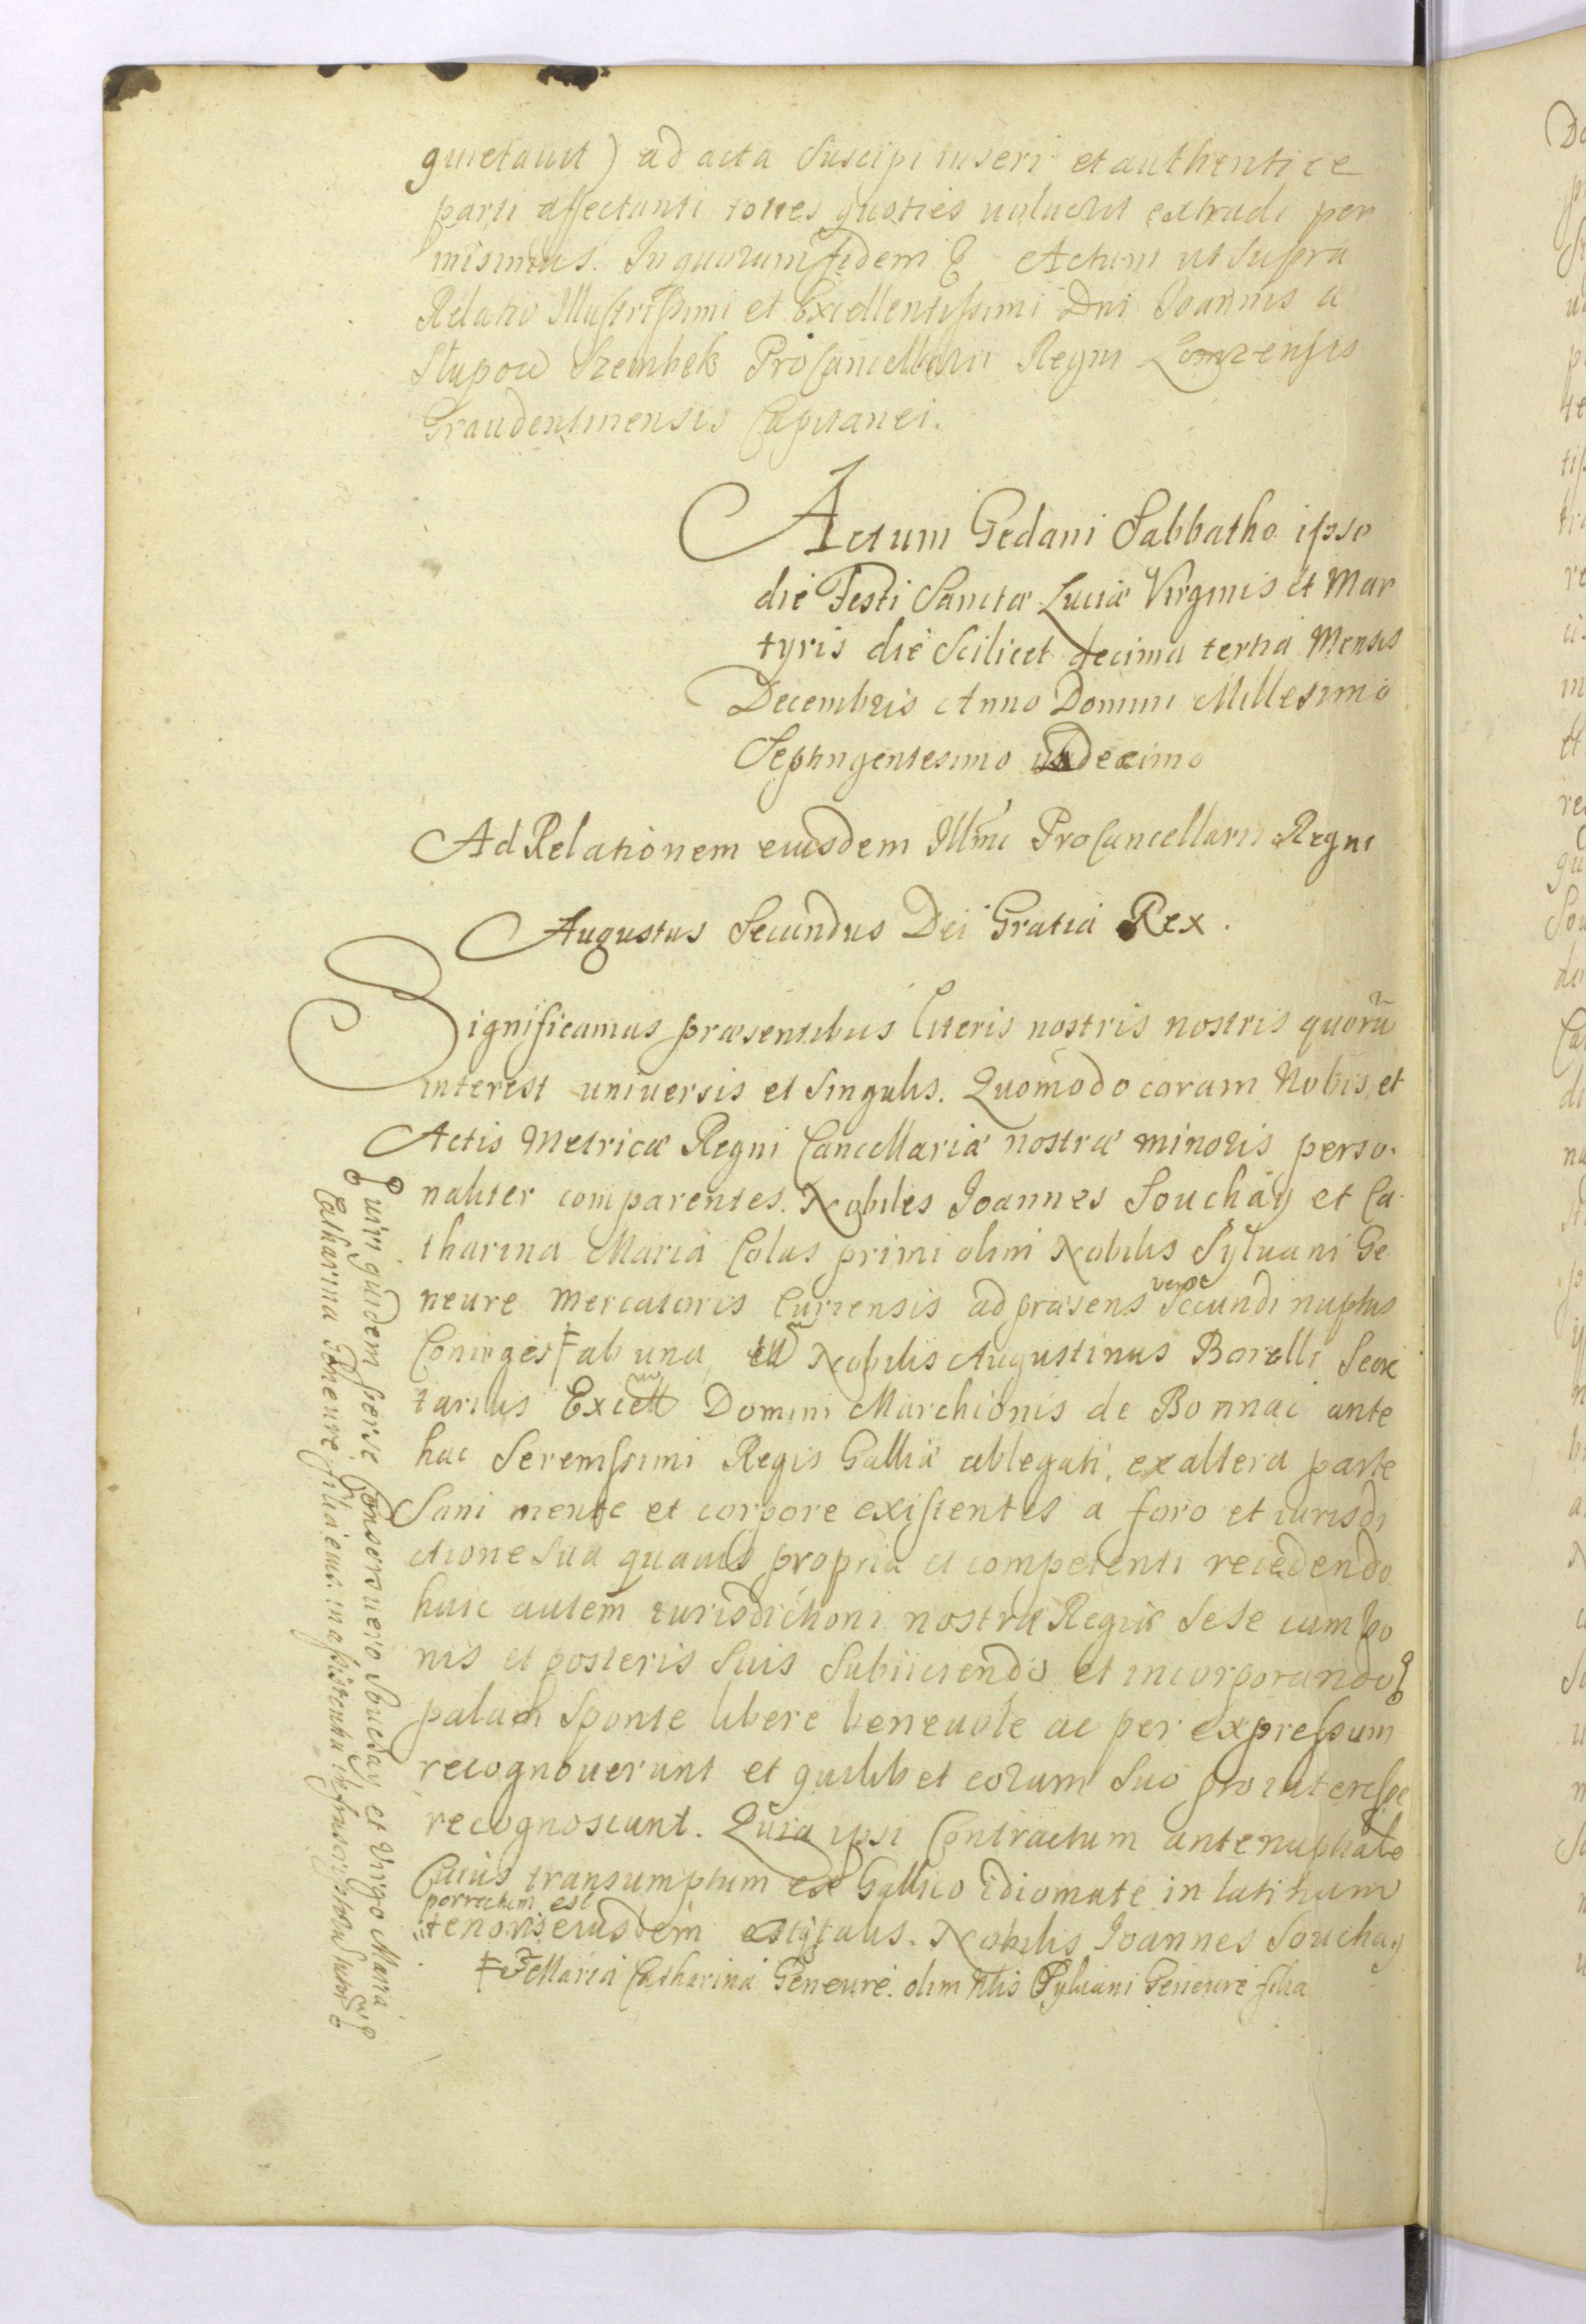 quietauit) ad acta Suscipi inseri et authentice
parti affectanti toties quoties uoluerit extradi per
misimus. In quorum fidem & Actum ut Supra
Relatio Illustrissimi et Excellentissimi Dni Joannis a
Słupow Szembek ProCancellarii Regni Lomzensis
Graudentinensis Capitanei.
Actum Gedani Sabbatho ipso
die Festi Sanctæ Luciæ Virginis et Mar
tyris die Scilicet decima tertia Mensis
Decembris Anno Domini Millesimo
Septingentesimo undecimo
Ad Relationem eiusdem Illmi ProCancellarii Regni
Augustus Secundus Dei Gratia Rex.
Significamus præsentibus Literis nostris nostris quorũ
interest uniuersis et Singulis. Quomodo coram Nobis et
Actis Metricæ Regni Cancellariæ nostræ minoris perso
naliter comparentes. Nobiles Joannes Souchay et Ca
tharina Maria Colas primi olim Nobilis Syluani Ge
neure Mercatoris Curiensis ad præsens vero Secundi nuptus
Coniuges ab una, Nobilis Augustinus Borelli Secre
tarius Excell Domini Marchionis de Bonnac ante
hac Serenissimi Regis Galliæ ablegati, ex altera parte
Sani mente et corpore existentes a foro et iurisdi
ctione Sua quauis propria et competenti recedendo
huic autem iurisdictioni nostræ Regiæ Sese cum bo
nis et posteris Suis Subiiciendo et incorporando
palam Sponte libere beneuole ac per expressum
recognouerunt et quilibet eorum Suo pro interesse
recognoscunt. Quia ipsi Contractum antenuptiale
Cuius transumptum ex Gallico idiomate in latinum
porrectum est
tenoris eiusdem est talis. Nobilis Joannes Souchay
Maria Catharina Geneure olim Nlis Syluani Geneure filia
uiri quidem per se Consors uero Souchay et Virgo Maria
Catharina Geneure filia eius in assistentia infrascriptorum